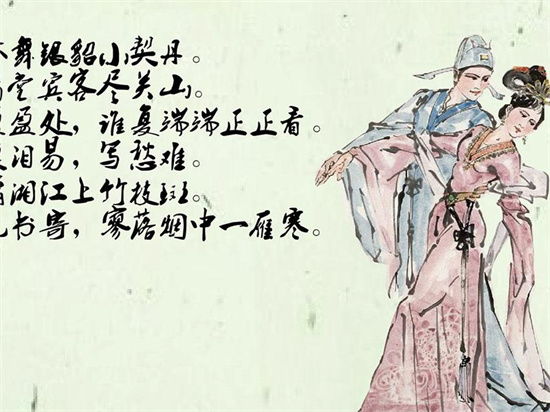 舞银貂小契丹。
堂宾客尽关山。
盈处，谁复端端正正看。
泪易，写愁难。
湘江上竹枝斑。
书寄，寥落烟中一雁寒。